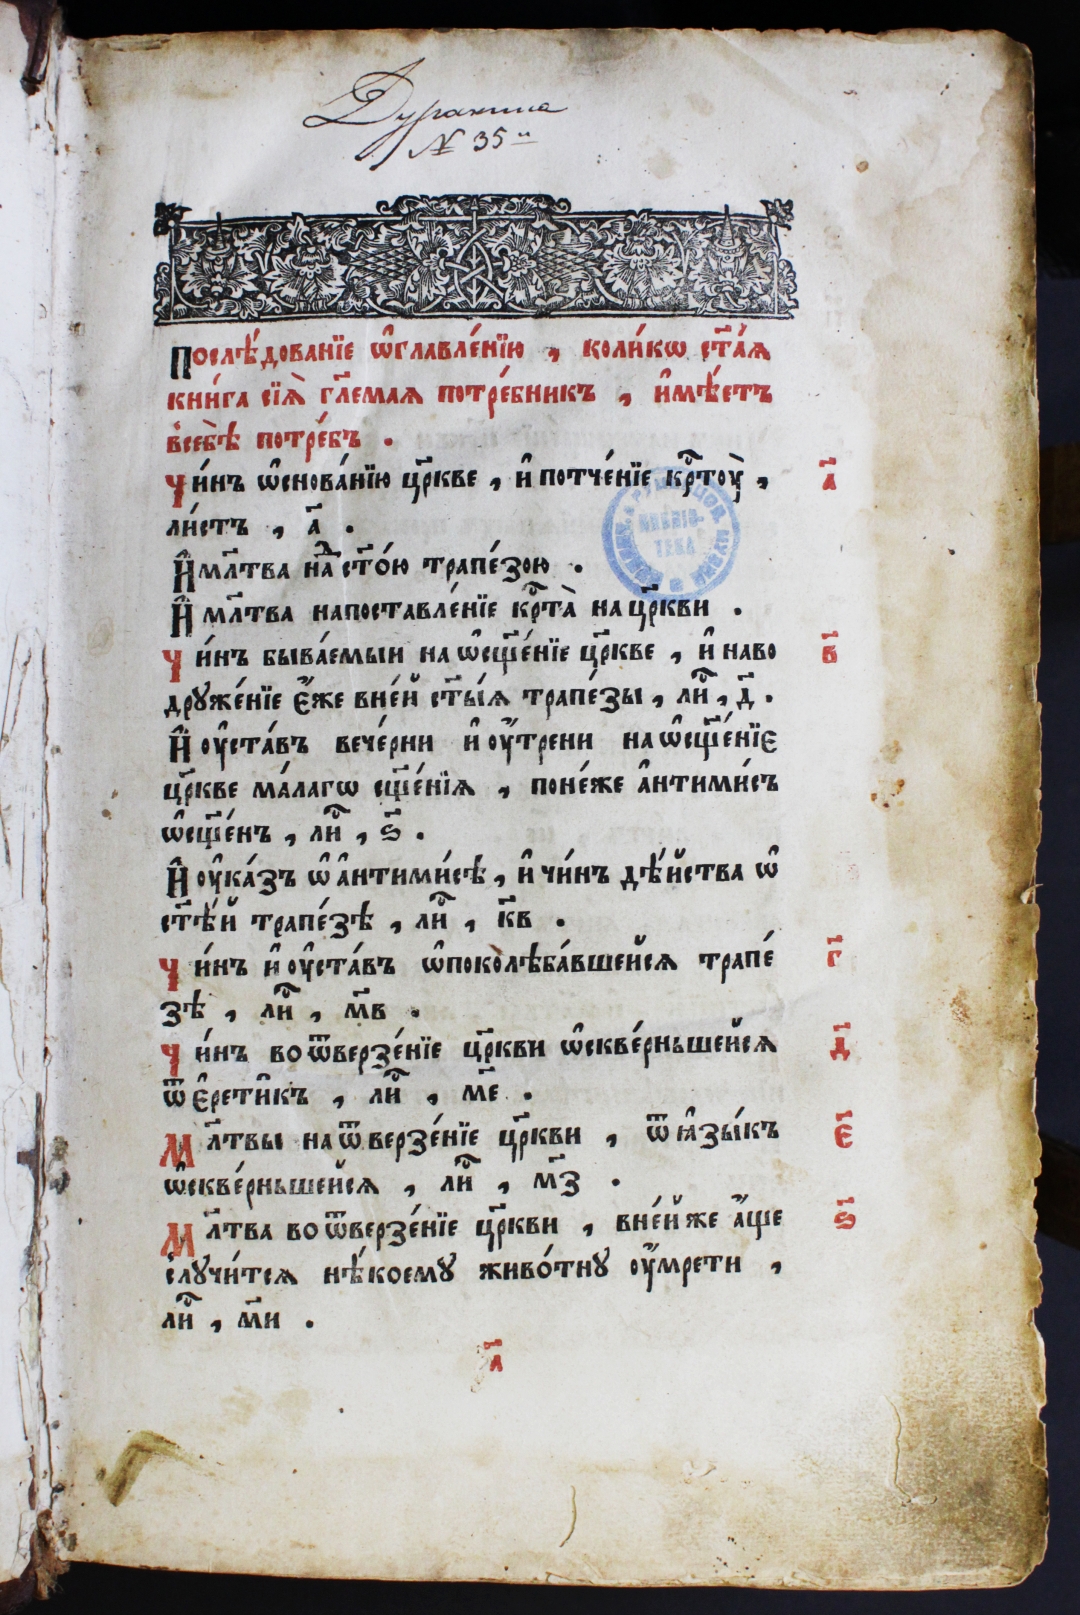 Дуракина
№ 35
Послѣ́дованїе ѡ҆главле́нїю , коли́кѡ ст҃а́ѧ
кни́га сїѧ̀ гл҃емая потре́бникъ , и҆мѣ́етъ
всебѣ̀ потре́бъ .
Чи́нъ ѡ҆снова́нїю цр҃кве , и҆ потче́нїе крⷭ҇тоу̀ , а҃
ли́стъ , а҃ .
И҆ мл҃тва наⷣ ст҃о́ю трапе́зою .
И҆ мл҃тва напоставле́нїе крⷭ҇та̀ на цр҃кви .
Чи́нъ быва́емыи на ѡ҆сщ҃е́нїе цр҃кве , и҆ наво б҃
друже́нїе є҆́же вне́й ст҃ы́ѧ трапе́зы , лиⷭ҇ , д҃ .
И҆ оу҆ста́въ вече́рни и҆ оу҆́трени на ѡ҆сщ҃е́нїе
цр҃кве ма́лагѡ сщ҃е́нїѧ , поне́же а҆нтими́съ
ѡ҆сщ҃е́нъ , лиⷭ҇ , ѕ҃ .
И҆ оу҆ка́зъ ѡ҆ а҆нтими́сѣ , и҆ чи́нъ дѣ́йства ѡ҆
ст҃ѣ́й трапе́зѣ , лиⷭ҇ , к҃в .
Чи́нъ и҆ оу҆ста́въ ѡ҆поколѣба́вшейсѧ трапе́ г҃
зѣ , лиⷭ҇ , м҃в .
Чи́нъ во ѿверзе́нїе цр҃кви ѡ҆скве́рньшейсѧ д҃
ѿ є҆рети҆къ , лиⷭ҇ , м҃е .
Мл҃твы на ѿверзе́нїе цр҃кви , ѿ ꙗ҆зы́къ є҃
ѡ҆скве́рньшейсѧ , лиⷭ҇ , м҃з .
Мл҃тва во ѿверзе́нїе цр҃кви , вне́й же а҆́ще ѕ҃
случи́тсѧ нѣ́коемꙋ живо́тнꙋ оу҆́мрети ,
лиⷭ҇ , м҃и .
а҃